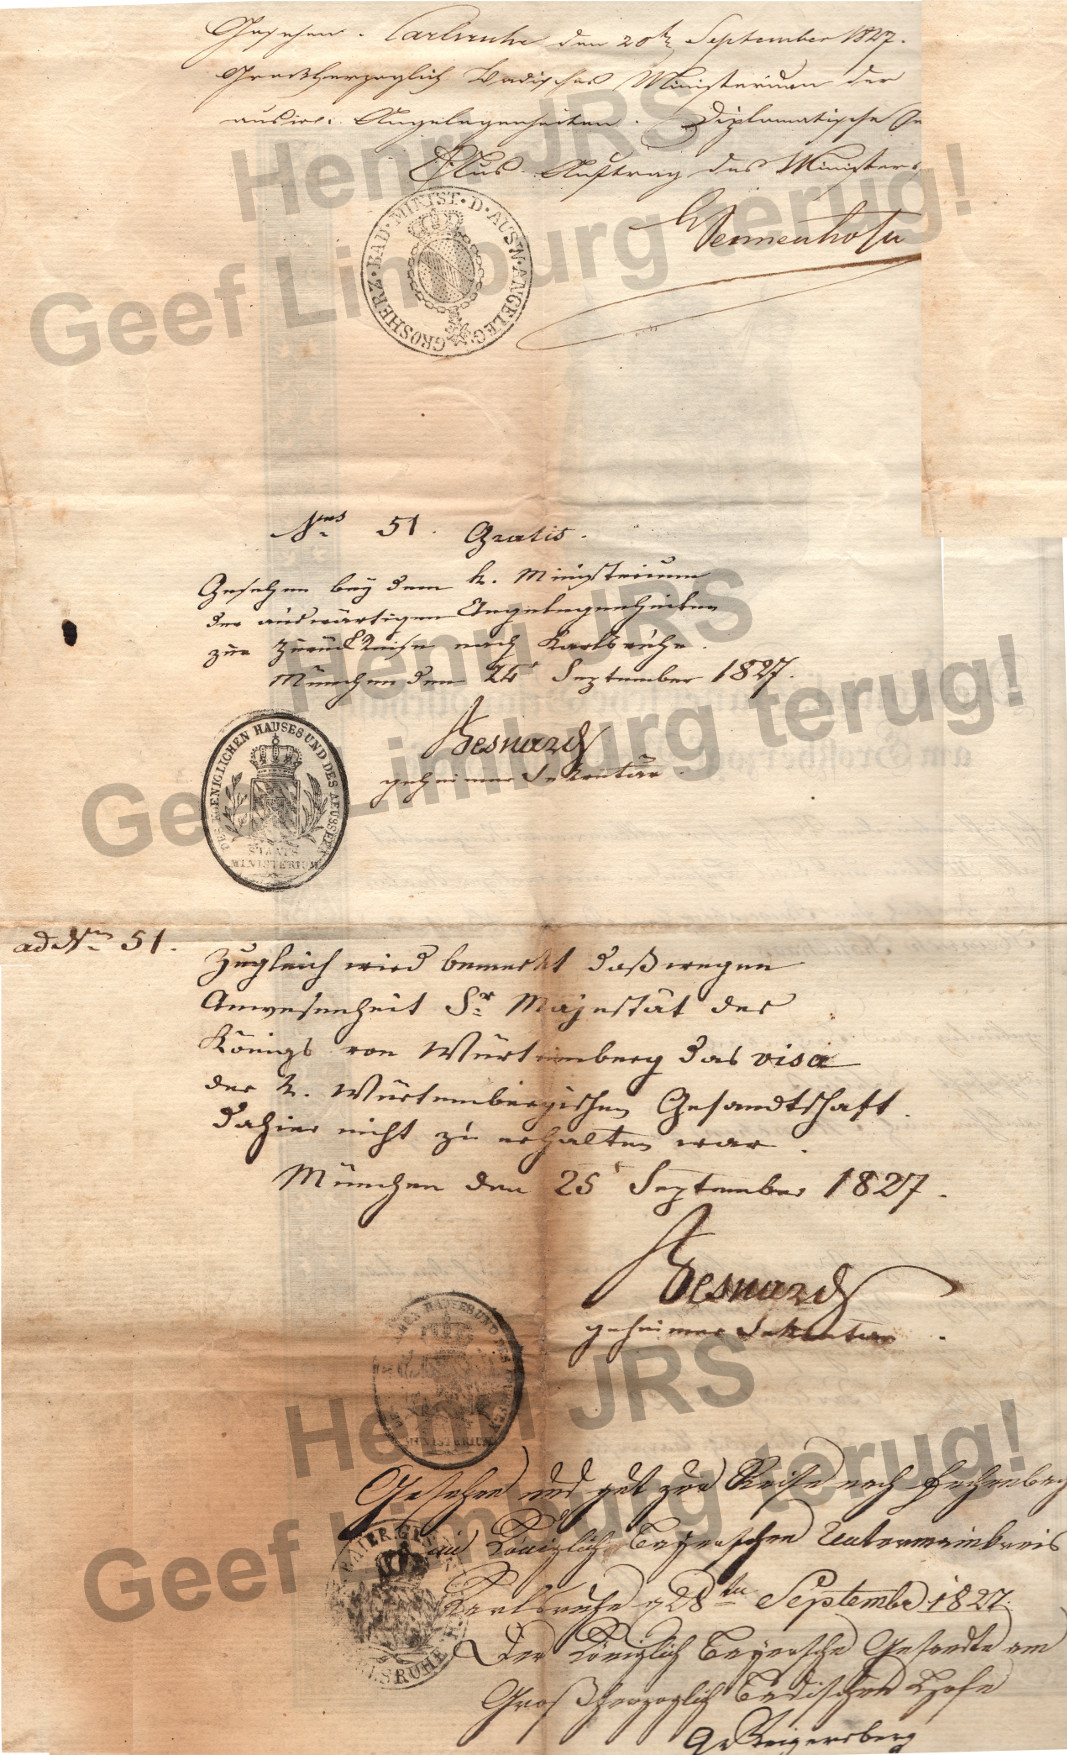 Gesehen. Carlsruhe den 20ten September 1827.
Großherzoglich Badisches Ministerium der
ausw. Angelegenheiten. Diplomatische
Aus Auftrag des Ministers
GROSHERZ·BAD·MINIST·D·AUSW·ANGELEG·
Henri JRS
Geef Limburg terug!
Nrus 51. Gratis.
Gesehen bey dem k. Ministerium
der auswärtigen Angelegenheiten
zur Zurückreise nach Karlsruhe.
München den 24 September 1827.
Besnard
geheimer Sekretär.
DES KOENIGLICHEN HAUSES UND DES AEUSSERN
STAATS
MINISTERIUM
Henri JRS
Geef Limburg terug!
ad Nrum 51.
Zugleich wird bemerkt daß wegen
Anwesenheit Sr Majestät des
Königs von Würtemberg das visa
der k. Würtembergischen Gesandtschaft
dahier nicht zu erhalten war.
München den 25 September 1827.
Besnard
geheimer Sekretär.
HAUSES UND DES
MINISTERIUM
Henri JRS
Geef Limburg terug!
Gesehen und gut zur Reise nach Fechenbach
im Königlich Bayerschen Untermainkreis
Karlsruhe d 28ten September 1827.
Der Königlich Bayersche Gesandte am
Großherzoglich Badischen Hofe
Gr Reigersberg